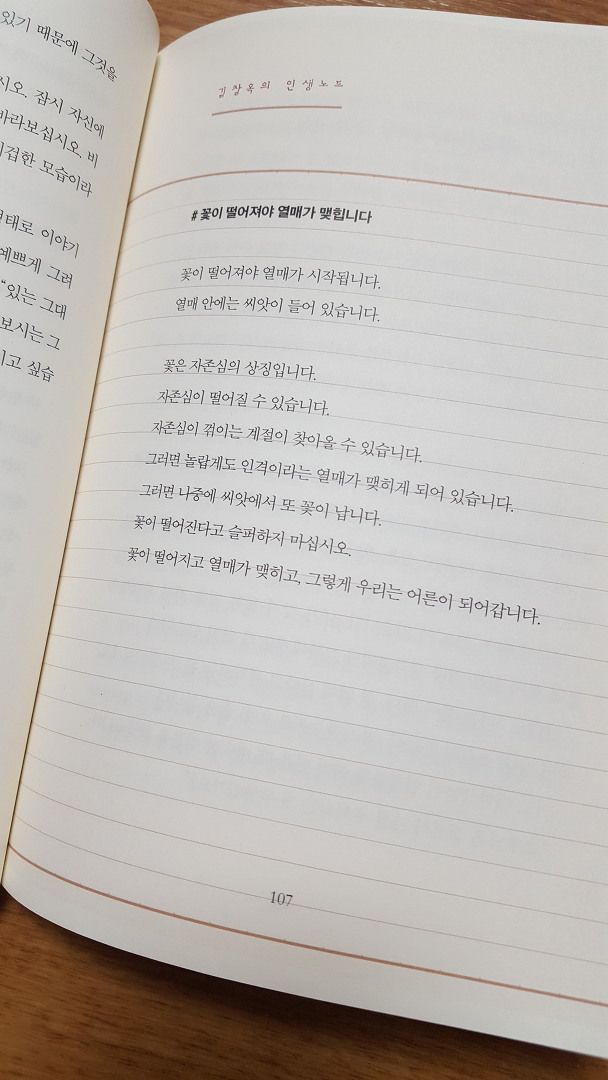 있기 때문에 그것을
시오. 잠시 자신에
바라보십시오. 비
겁한 모습이라
형태로 이야기
예쁘게 그러
"있는 그대
보시는 그
고 싶습
김창옥의 인생노트
# 꽃이 떨어져야 열매가 맺힙니다
꽃이 떨어져야 열매가 시작됩니다.
열매 안에는 씨앗이 들어 있습니다.
꽃은 자존심의 상징입니다.
자존심이 떨어질 수 있습니다.
자존심이 꺾이는 계절이 찾아올 수 있습니다.
그러면 놀랍게도 인격이라는 열매가 맺히게 되어 있습니다.
그러면 나중에 씨앗에서 또 꽃이 납니다.
꽃이 떨어진다고 슬퍼하지 마십시오.
꽃이 떨어지고 열매가 맺히고, 그렇게 우리는 어른이 되어갑니다.
107